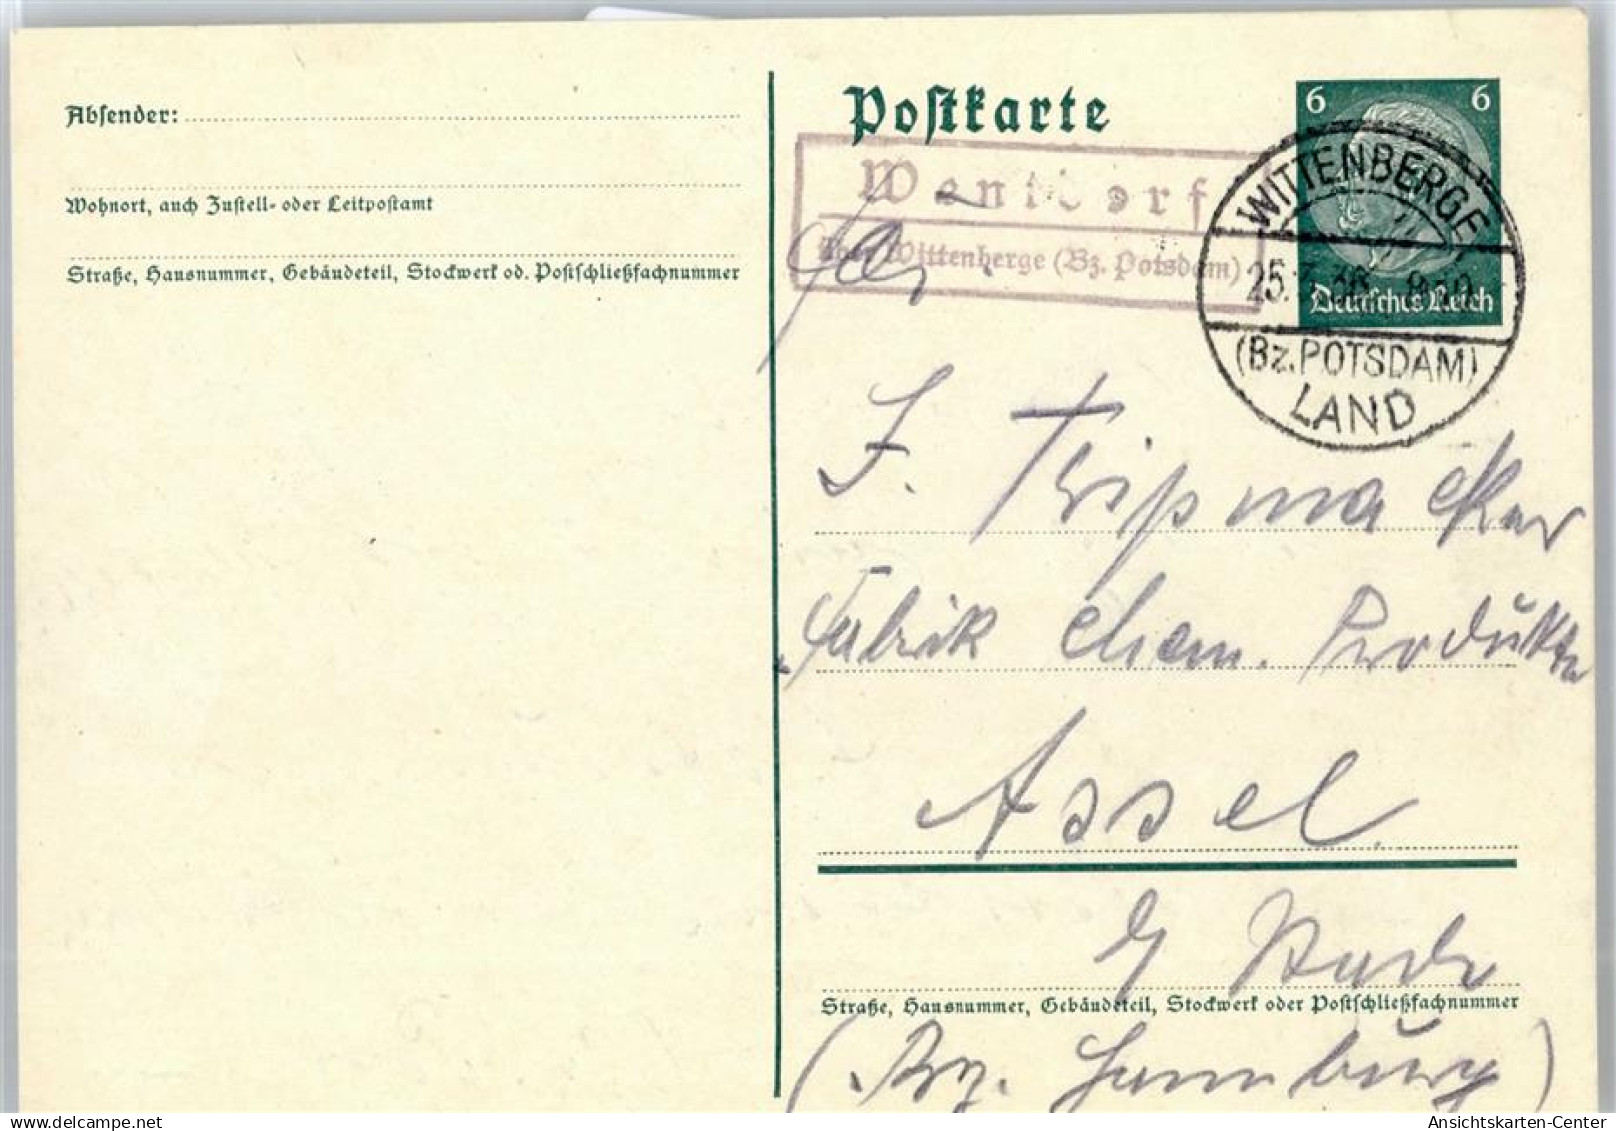 Absender:
Wohnort, auch Zustell- oder Leitpostamt
Straße, Hausnummer, Gebäudeteil, Stockwerk od. Postschließfachnummer
Postkarte
6 6
Deutsches Reich
Wentdorf
Wittenberge (Bz. Potsdam)
WITTENBERGE
25. 38
(Bz. POTSDAM)
LAND
F. Tripmacker
Fabrik chem. Produkte
Assel
Stade
Straße, Hausnummer, Gebäudeteil, Stockwerk oder Postschließfachnummer
(Bz. Hamburg)
Ansichtskarten-Center